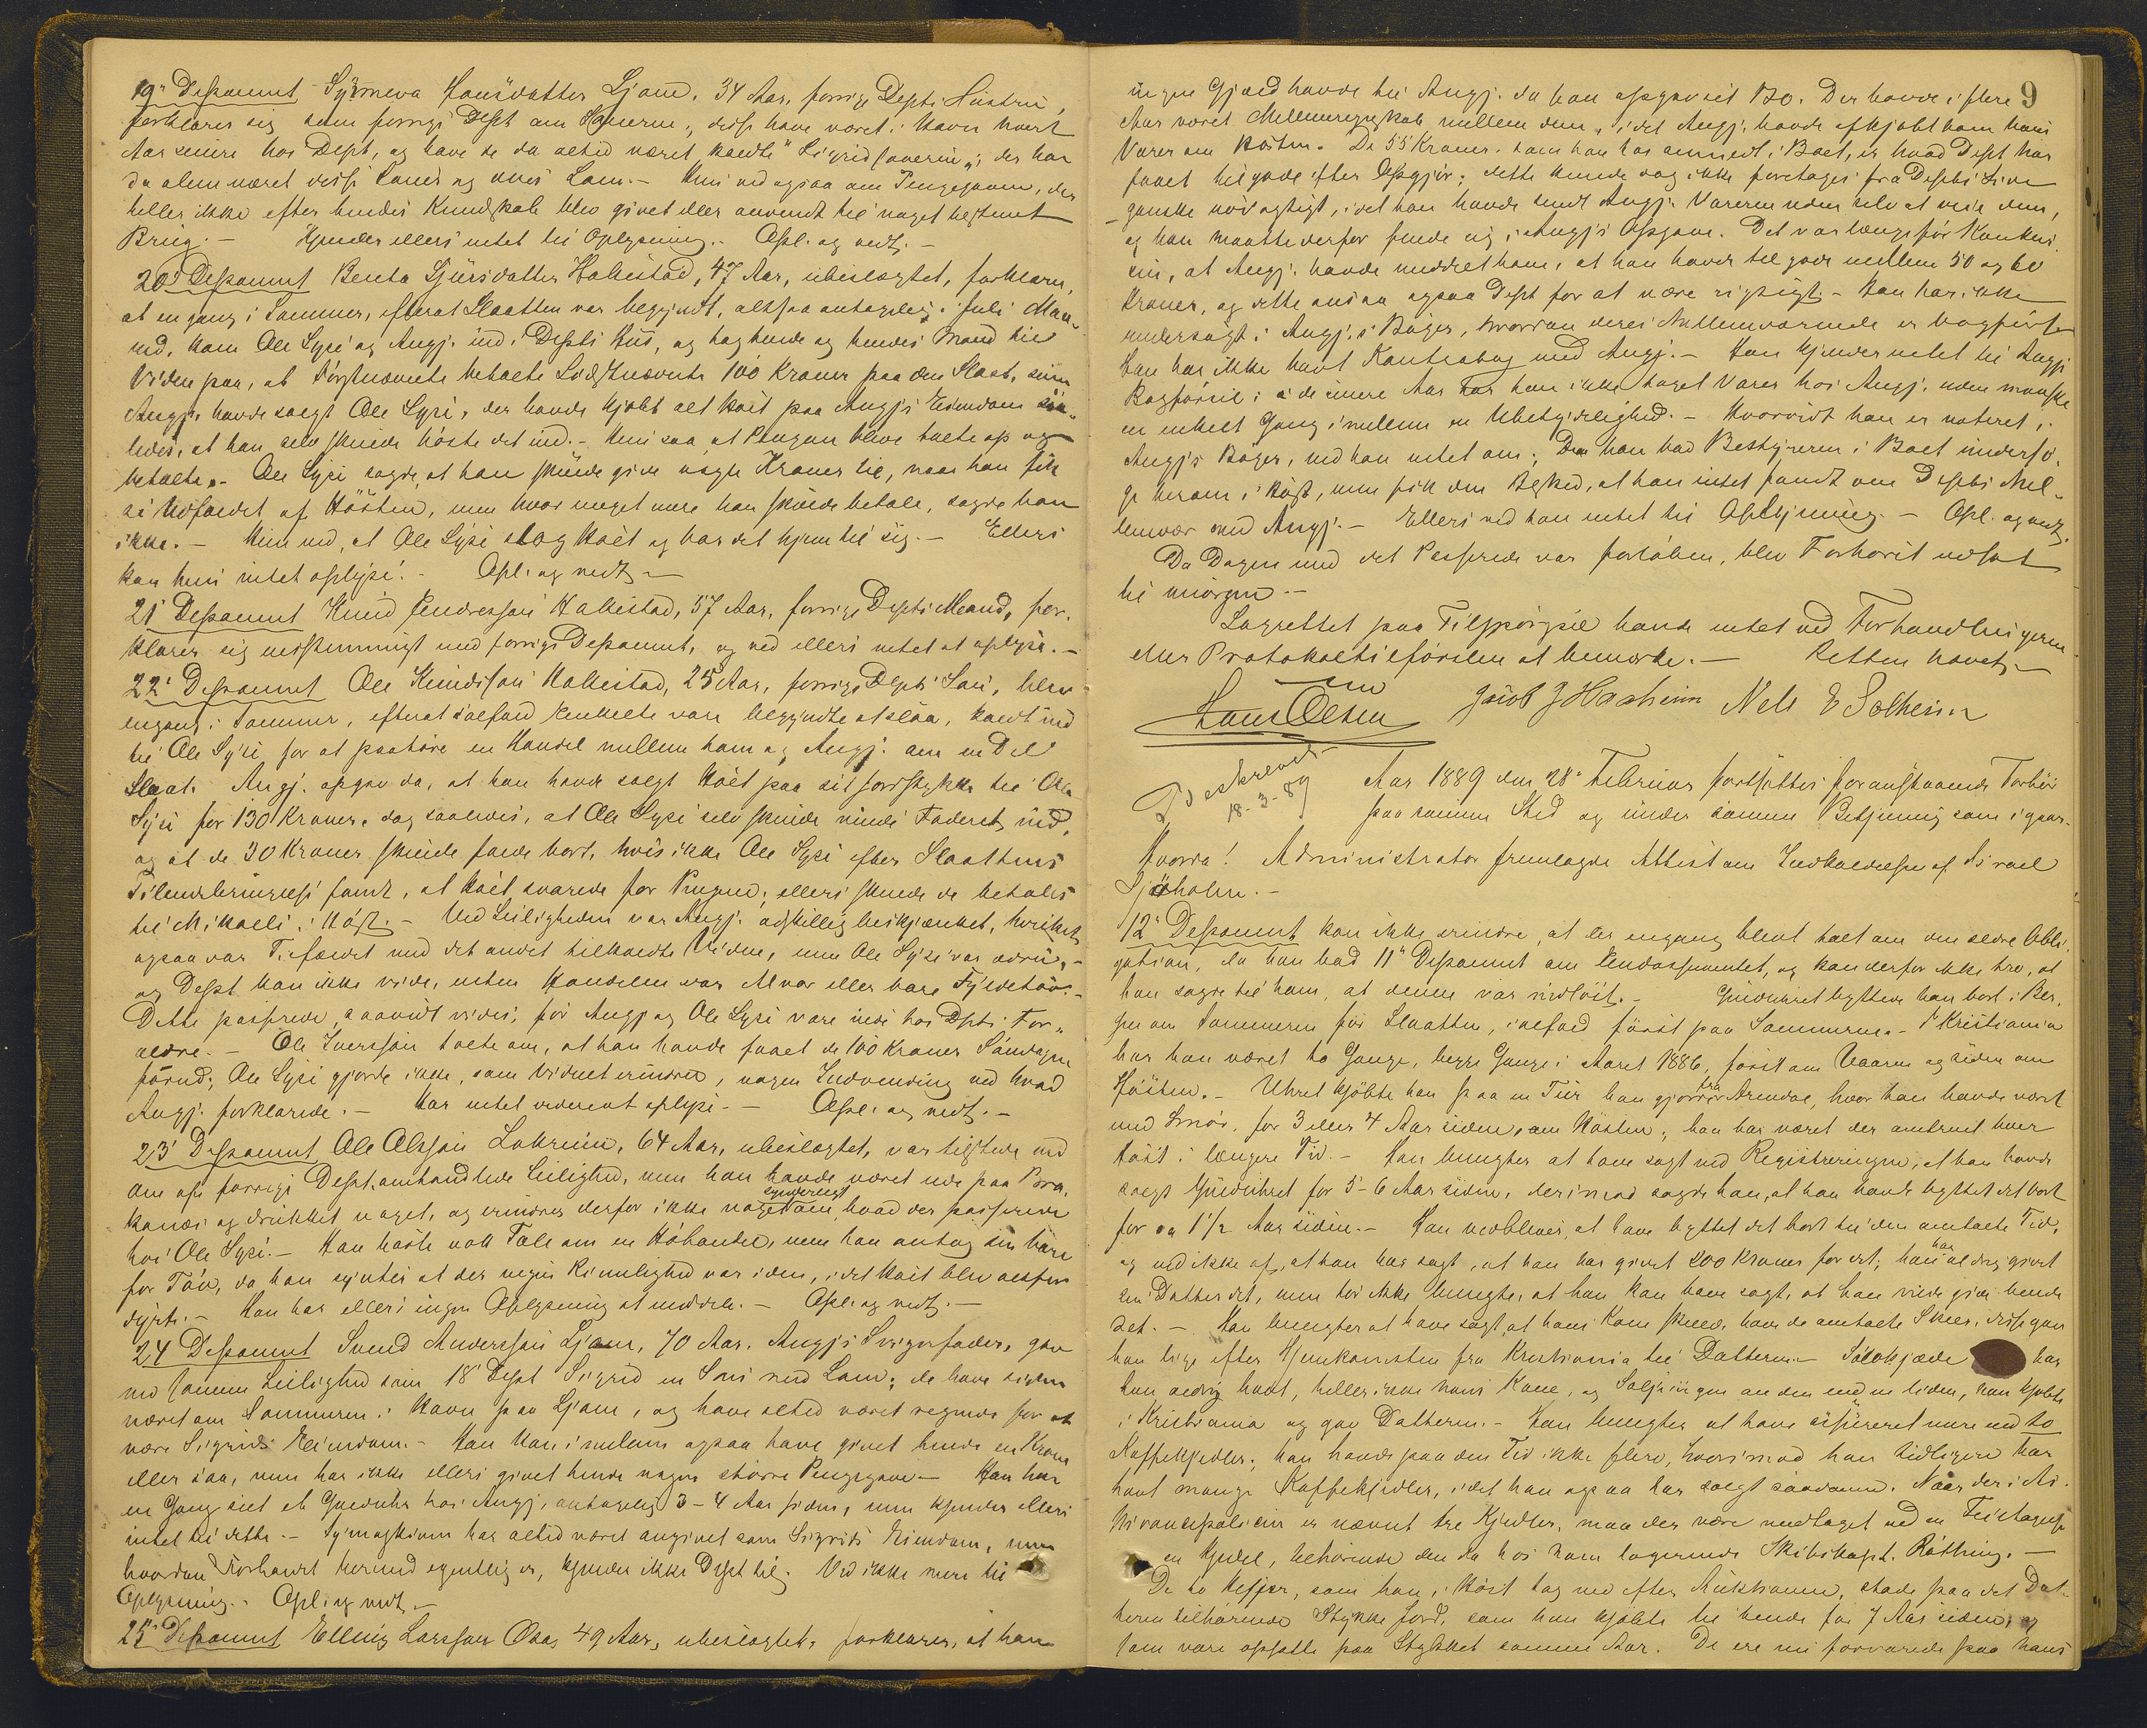 19' Deponent Synneva Hansdatter Ljone, 34 Aar, forrige Depts Hustru,
forklarer sig som forrige Dept om Sauerne, disse have været i Havn hvert
Aar senere hos Dept, og have de da altid været kaldt "Sigridsauerne"; der har
da alene været disse Sauer og deres Lam. – Hun ved ogsaa om Pengegaven, der
heller ikke efter hendes Kundskab blev givet eller anvendt til noget bestemt
Brug. – Kjender ellers intet til Oplysning. – Opl. og vedt. –
20' Deponent Brita Sjursdatter Hallestad, 47 Aar, ubeslægtet, forklarer,
at en gang i Sommer, efterat Slaatten var begyndt, altsaa antagelig i Juli Maa-
ned, kom Ole Lysi og Angj. ind i Depts Hus, og tog hende og hendes Mand til
Vidne paa, at Førstnævnte betalte Sidstnævnte 100 Kroner paa den Slaat, som
Angj. havde solgt Ole Lysi, der havde kjøbt alt Høit paa Angj's Eiendom saa-
ledes, at han selv skulde høste det ind. – Hun saa at Pengene bleve talte op og
betalte. – Ole Lysi sagde, at han skulde give nogle Kroner til, naar han fik
se Udfaldet af Høsten, men hvor meget mere han skulde betale, sagde han
ikke. – Hun ved, at Ole Lysi slog Høit og bar det hjem til sig. – Ellers
kan hun intet oplyse. – Opl. og vedt. –
21' Deponent Knud Endressen Hallestad, 57 Aar, forrige Depts Mand, for-
klarer sig overstemmigt med forrige Deponent, og ved ellers intet at oplyse. –
22' Deponent Ole Knudsen Hallestad, 25 Aar, forrige Depts Søn, blev
engang i Sommer, efterat ialfald Enkelte vare begyndte at slaa, kaldt ind
til Ole Lysi for at paahøre en Handel mellem ham og Angj. om en Del
Slaat. Angj. opgav da, at han havde solgt Høit paa sit Jordstykke til Ole
Lysi for 130 Kroner, dog saaledes, at Ole Lysi selv skulde vinde Foderet ind,
og at de 30 Kroner skulde falde bort, hvis ikke Ole Lysi efter Slaattens
Tilendebringelse fandt, at Høit svarede for Pengene; ellers skulde de betales
til Mikaeli i Høst. – Ved Leiligheden var Angj. adskillig beskjænket, hvilket
ogsaa var Tilfældet med det andet tilkaldte Vidne, men Ole Lysi var ædru, –
og Dept kan ikke vide, enten Handelen var Alvor eller bare Fyldetøv. –
Dette passerede, saavidt vides, før Angj og Ole Lysi vare inde hos Depts For-
ældre. – Ole Iversson talte om, at han havde faaet de 100 Kroner Søndagen
førud; Ole Lysi gjorde ikke, som Vidnet erindrer, nogen Indvending ved hvad
Angj. forklarede. – Har intet videre at oplyse. – Opl. og vedt. –
23' Deponent Ole Olsson Lokreim, 64 Aar, ubeslægtet, var tilstede ved
den af forrige Dept. omhandlede Leilighed, men han havde været ude paa Bra-
kanæs og drukket noget, og erindrer derfor ikke noget synderligt om, hvad der passerede
hos Ole Lysi. – Han hørte nok Tale om en Høhandel, men han antog den bare
for Tøv, da han syntes at der ingen Rimelighed var i den, idet Høit blev altfor
dyrt. – Han har ellers ingen Oplysning at meddele. – Opl. og vedt. –
24 Deponent Svend Anderssen Ljone, 70 Aar, Angj's Svigerfader, gav
ved samme Leilighed som 18' Dept Sigrid en Sau med Lam; de have siden
været om Sommeren i Havn paa Ljone, og have altid været regnede for at
være Sigrids Eiendom. – Han kan imellem ogsaa have givet hende en Krone
eller saa, men har ikke ellers givet hende nogen større Pengegave. – Han har
en Gang seet et Guldur hos Angj, antagelig 3-4 Aar siden, men kjender ellers
intet til dette. – Symaskinen har altid været angivet som Sigrids Eiendom, men
hvordan Forholdet hermed egentlig er, kjender ikke Dept til. Ved ikke mere til
Oplysning. – Opl. og vedt. –
25' Deponent Elling Larssen Osa, 49 Aar, ubeslægtet, forklarer, at han
9
ingen Gjæld havde til Angj. da han opgav sit Bo. Der havde i flere
Aar været Mellemregnskab mellem dem, idet Angj. havde afkjøbt ham hans
Varer om Høsten. De 55 Kroner, som han har anmeldt i Boet, er hvad Dept har
faaet tilgode efter Opgjør; dette kunde dog ikke foretages fra Depts Side
ganske nøiagtigt, idet han havde sendt Angj. Varerne uden selv at veie dem,
og han maatte derfor finde sig i Angj's Opgave. Det var længe før Konkur-
sen, at Angj. havde meddelt ham, at han havde tilgode mellem 50 og 60
Kroner, og dette ansaa ogsaa Dept for at være rigtigt. – Han har ikke
undersøgt i Angj.s Bøger, hvordan deres Mellemværende er bogført.
Han har ikke havt Kontrabog med Angj. – Han kjender intet til Angj's
Bogførsel; i de senere Aar har han ikke taget Varer hos Angj. uden maaske
en enkelt Gang imellem en Ubetydelighed. – Hvorvidt han er noteret i
Angj's Bøger, ved han intet om; Den han bad Bestyreren i Boet undersø-
ge herom i Høst, men fik den Besked, at han intet fandt om Depts Mel-
lemvær med Angj. – Ellers ved han intet til Oplysning. – Opl. og vedt.
Da Dagen med det Passerede var forløben, blev Forhøret udsat
til imorgen. –
Lagrettet paa Tilspørgsel havde intet ved Forhandlingerne
eller Protokoltilførslen at bemærke. – Retten hævet. –
Hans Olsen Jacob J Haaheim Nels E Solheim
Beskrevet
18-3-89
Aar 1889 den 28' Februar fortsættes foranstaaende Forhør
paa samme Sted og under samme Betjening som igaar.
Hvorda! Administrator fremlagde Attest om Indkaldelse af Sivael
Sjøholm. –
12' Deponent kan ikke erindre, at der engang blevt talt om den ældre Obli-
gation, da han bad 11' Deponent om Endossementet, og kan derfor ikke tro, at
han sagde til ham, at denne var indløst. – Gulduhret byttede han bort i Ber-
gen om Sommeren før Slaatten, ialfald først paa Sommeren. – I Kristiania
har han været to Gange, begge Gange i Aaret 1886, først om Vaaren og siden om
Høsten. – Uhret kjøbte han paa en Tur han gjorde fra Arendal, hvor han havde været
med Smør, for 3 eller 4 Aar siden, om Høsten; han har været der omtrent hver
Høst i længere Tid. – Han benegter at have sagt ved Registreringen, at han havde
solgt Gulduhret for 5-6 Aar siden, derimod sagde han, at han havde byttet det bort
for ca 1 1/2 Aar siden. – Han vedbliver, at have byttet det bort til den omtalte Tid,
og ved ikke af, at han har sagt, at han har givet 200 Kroner for det; han har aldrig givet
sin Datter det, men tør ikke benegte, at han kan have sagt, at han vilde give hende
det. – Han benegter at have sagt, at hans Kone skulde have de omtalte Skeer, disse gav
han lige efter Hjemkomsten fra Kristiania til Datteren. – Sølvkjæde har
han aldrig havt, heller ikke hans Kone, og Sølje ingen anden end en liden, han kjøbte
i Kristiania og gav Datteren. – Han benegter at have assureret mere end to
Kaffekjedler; han havde paa den Tid ikke flere, hvorimod han tidligere har
havt mange Kaffekjedler, idet han ogsaa har solgt saadanne. Naar der i As-
surancepolicen er nævnt tre Kjedler, maa der være medtaget ved en Feiltagelse
en Kjedel, tilhørende den da hos ham logerende Skibskapt. Røthing. –
De to Hesjer, som han i Høst tog ned efter Auktionen, stode paa det Dat-
teren tilhørende Stykke Jord, som han kjøbte til hende for 7 Aar siden, og
som vare opsatte paa Stykket samme Aar. De ere nu forvarede paa hans